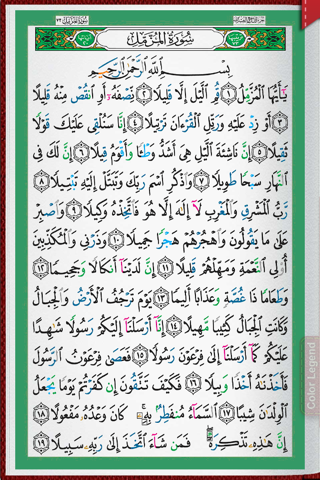 سُورَةُ الْمُزَّمِّلِ
بِسْمِ ٱللَّهِ ٱلرَّحْمَٰنِ ٱلرَّحِيمِ
يَٰٓأَيُّهَا ٱلْمُزَّمِّلُ ١ قُمِ ٱلَّيْلَ إِلَّا قَلِيلًا ٢ نِّصْفَهُۥٓ أَوِ ٱنقُصْ مِنْهُ قَلِيلًا
٣ أَوْ زِدْ عَلَيْهِ وَرَتِّلِ ٱلْقُرْءَانَ تَرْتِيلًا ٤ إِنَّا سَنُلْقِى عَلَيْكَ قَوْلًا
ثَقِيلًا ٥ إِنَّ نَاشِئَةَ ٱلَّيْلِ هِىَ أَشَدُّ وَطْـًٔا وَأَقْوَمُ قِيلًا ٦ إِنَّ لَكَ فِى
ٱلنَّهَارِ سَبْحًا طَوِيلًا ٧ وَٱذْكُرِ ٱسْمَ رَبِّكَ وَتَبَتَّلْ إِلَيْهِ تَبْتِيلًا ٨
رَّبُّ ٱلْمَشْرِقِ وَٱلْمَغْرِبِ لَآ إِلَٰهَ إِلَّا هُوَ فَٱتَّخِذْهُ وَكِيلًا ٩ وَٱصْبِرْ
عَلَىٰ مَا يَقُولُونَ وَٱهْجُرْهُمْ هَجْرًا جَمِيلًا ١٠ وَذَرْنِى وَٱلْمُكَذِّبِينَ
أُو۟لِى ٱلنَّعْمَةِ وَمَهِّلْهُمْ قَلِيلًا ١١ إِنَّ لَدَيْنَآ أَنكَالًا وَجَحِيمًا ١٢
وَطَعَامًا ذَا غُصَّةٍ وَعَذَابًا أَلِيمًا ١٣ يَوْمَ تَرْجُفُ ٱلْأَرْضُ وَٱلْجِبَالُ
وَكَانَتِ ٱلْجِبَالُ كَثِيبًا مَّهِيلًا ١٤ إِنَّآ أَرْسَلْنَآ إِلَيْكُمْ رَسُولًا شَٰهِدًا
عَلَيْكُمْ كَمَآ أَرْسَلْنَآ إِلَىٰ فِرْعَوْنَ رَسُولًا ١٥ فَعَصَىٰ فِرْعَوْنُ ٱلرَّسُولَ
فَأَخَذْنَٰهُ أَخْذًا وَبِيلًا ١٦ فَكَيْفَ تَتَّقُونَ إِن كَفَرْتُمْ يَوْمًا يَجْعَلُ
ٱلْوِلْدَٰنَ شِيبًا ١٧ ٱلسَّمَآءُ مُنفَطِرٌۢ بِهِۦ ۚ كَانَ وَعْدُهُۥ مَفْعُولًا ١٨
إِنَّ هَٰذِهِۦ تَذْكِرَةٌ ۖ فَمَن شَآءَ ٱتَّخَذَ إِلَىٰ رَبِّهِۦ سَبِيلًا ١٩
Color Legend